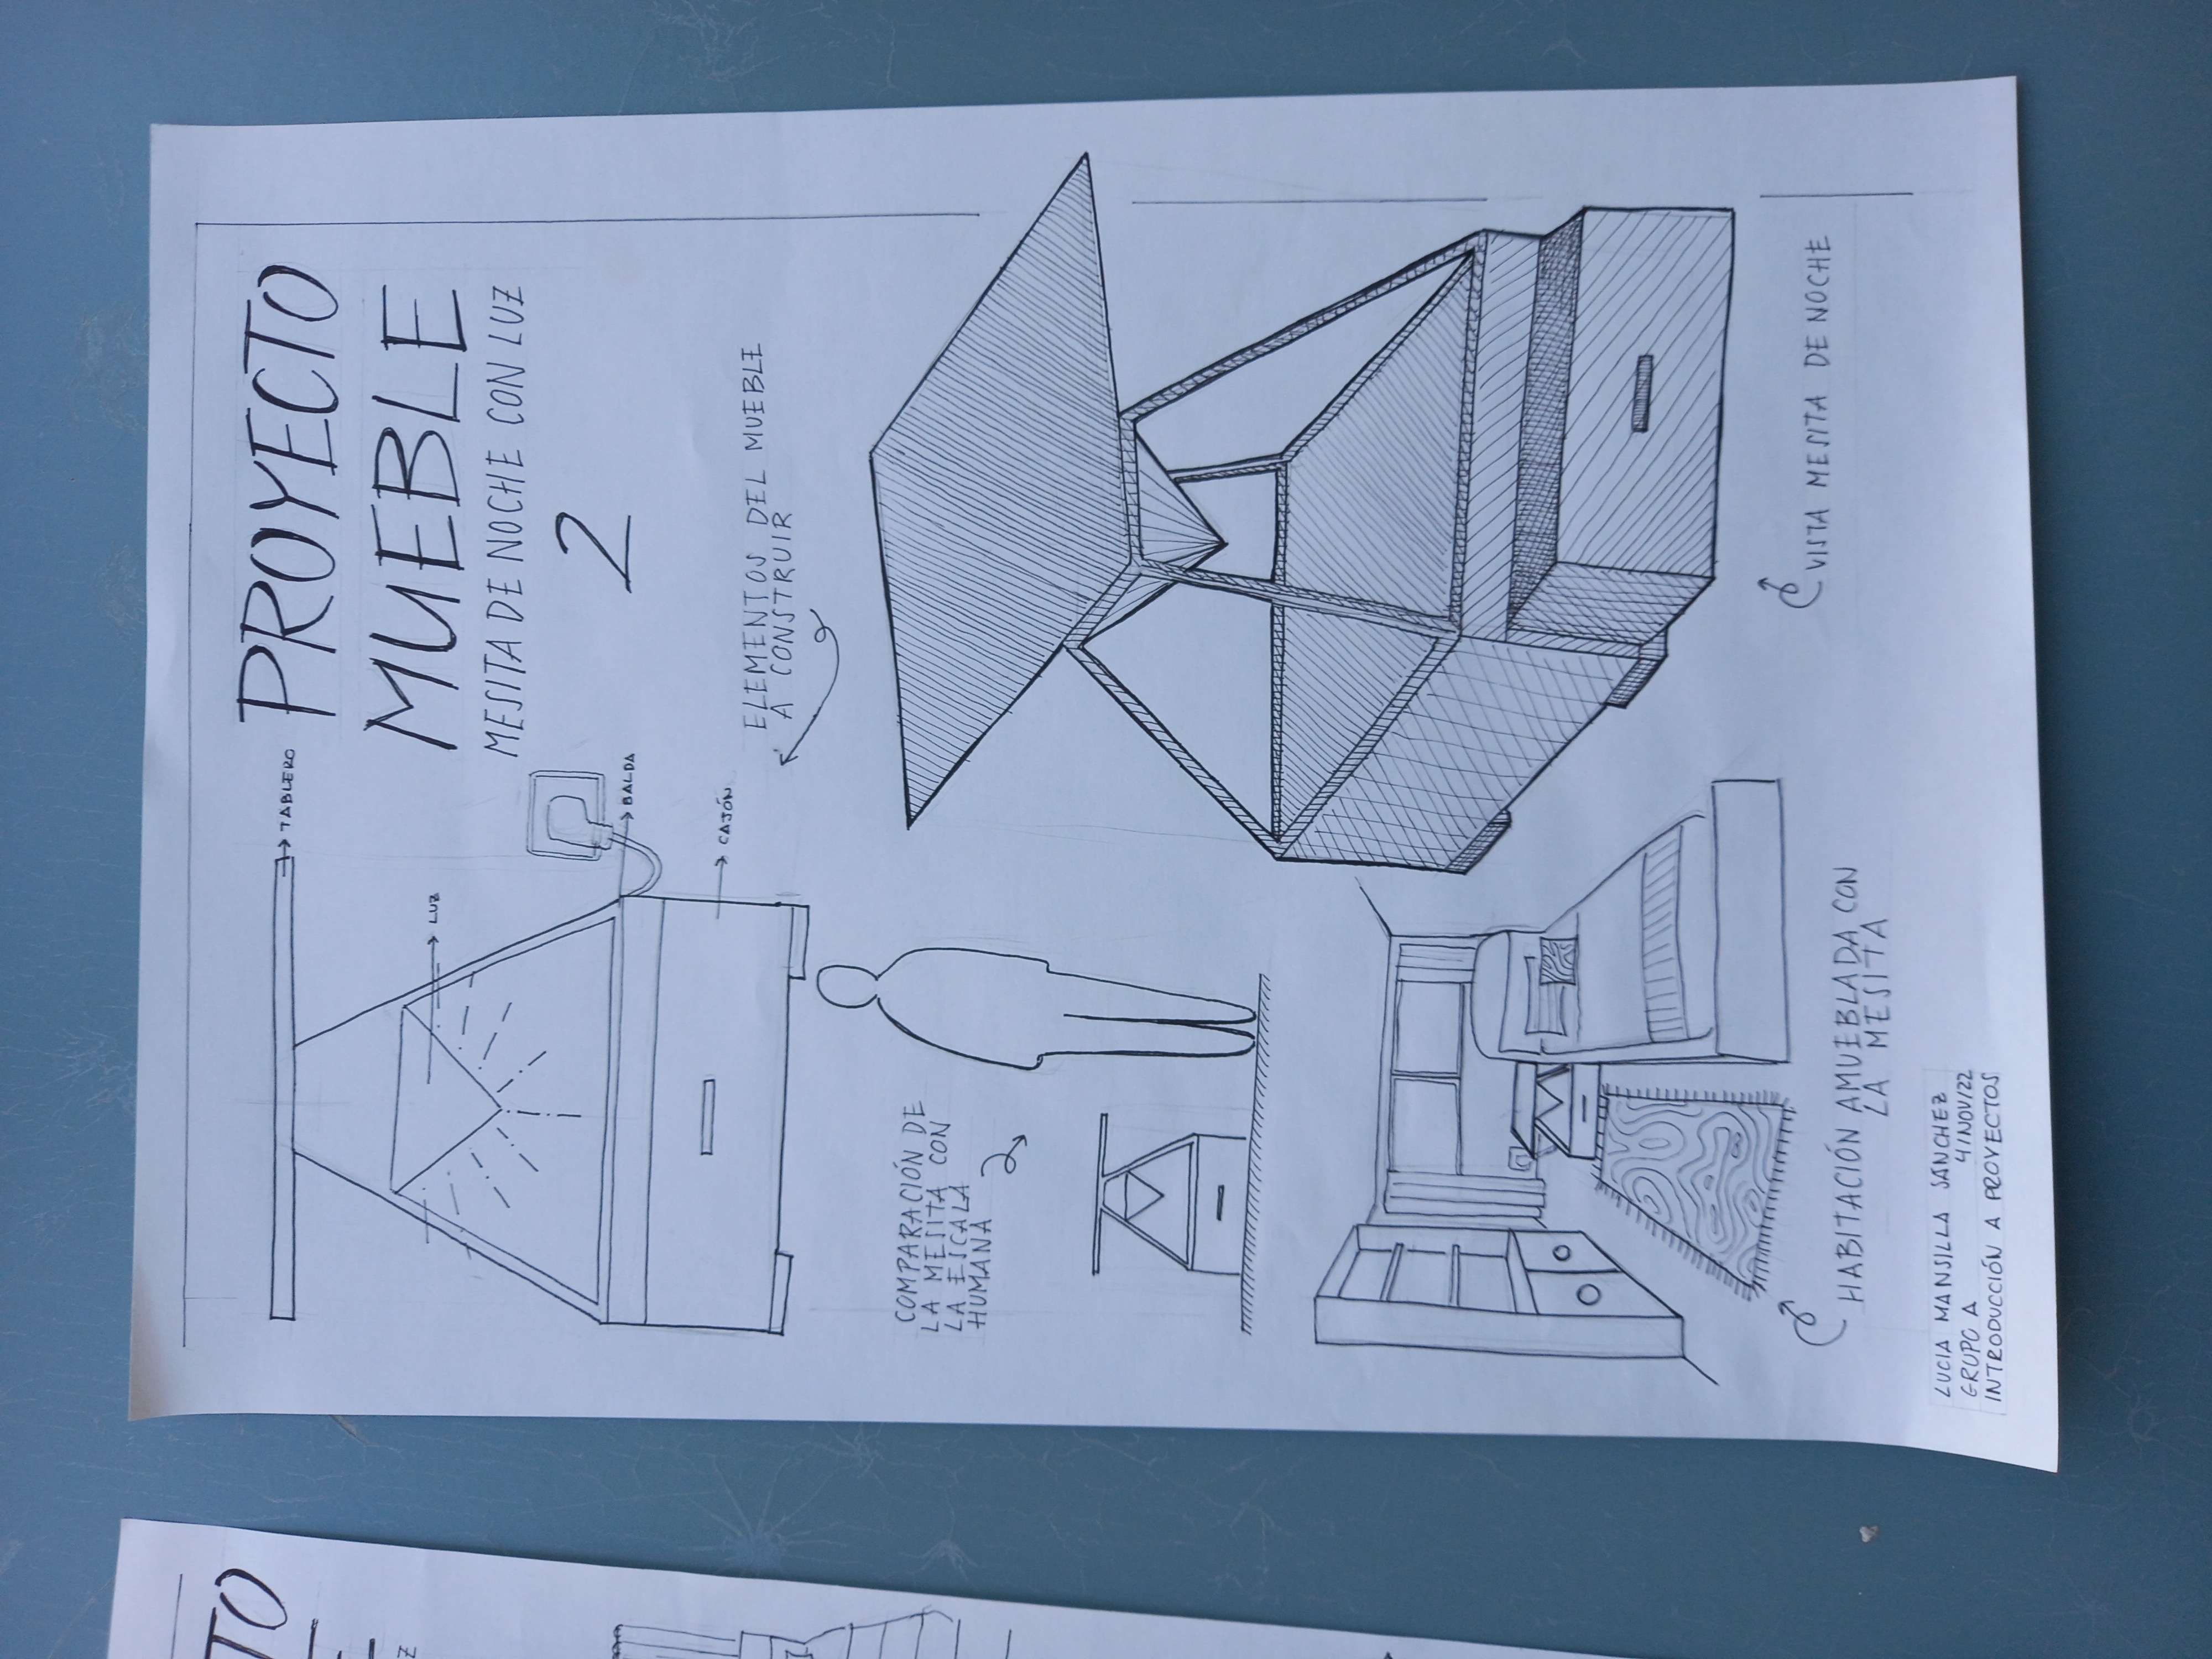 PROYECTO
MUEBLE
MESITA DE NOCHE CON LUZ
2
TABLERO
LUZ
BALDA
CAJÓN
ELEMENTOS DEL MUEBLE
A CONSTRUIR
COMPARACIÓN DE
LA MESITA CON
LA ESCALA
HUMANA
VISTA MESITA DE NOCHE
HABITACIÓN AMUEBLADA CON
LA MESITA
LUCIA MANSILLA SÁNCHEZ
GRUPO A 4/NOV/22
INTRODUCCIÓN A PROYECTOS
TO
Z